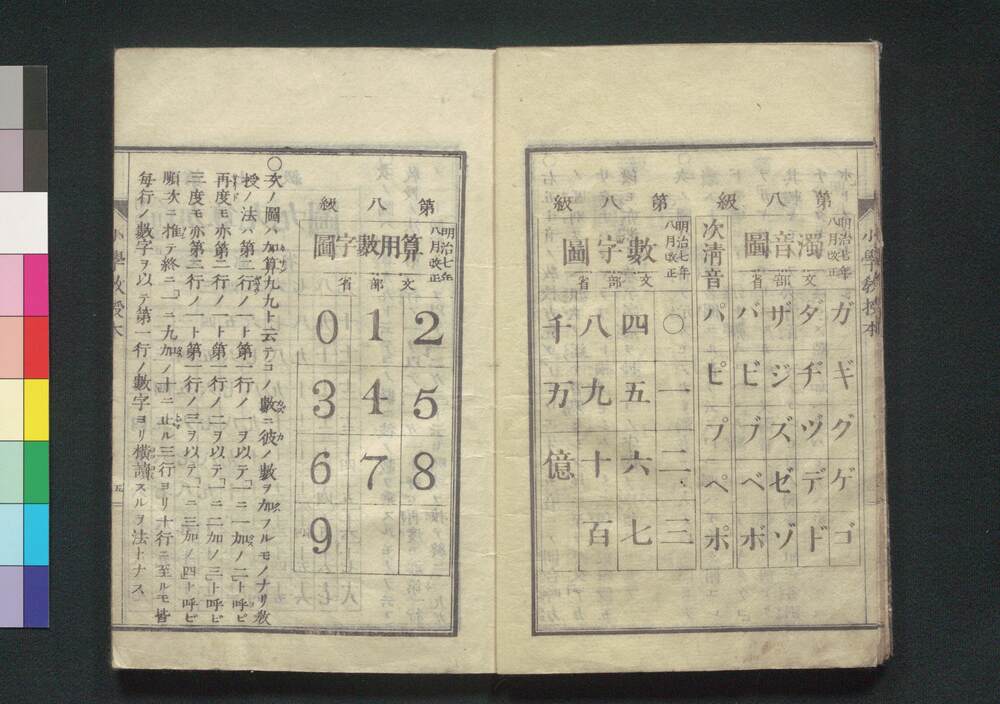 小學教授本
第八級
明治七年
八月改正
濁音圖
文部省
ガギグゲゴ
ダヂヅデド
ザジズゼゾ
バビブベボ
次清音
パピプペポ
第八級
明治七年
八月改正
數字圖
文部省
〇一二三
四五六七
八九十百
千万億
第八級
明治七年
八月改正
算用數字圖
文部省
2 5 8
1 4 7
0 3 6 9
〇次ノ圖ハ加算九九ト云テコノ數ニ彼ノ數ヲ加フルモノナリ教
授ノ法ハ第二行ノ一ト第一行ノ一ヲ以テ「一ニ一加ノ二」ト呼ビ
再度モ亦第二行ノ一ト第一行ノ二ヲ以テ「一ニ二加ノ三」ト呼ビ
三度モ亦第二行ノ一ト第一行ノ三ヲ以テ「一ニ三加ノ四」ト呼ビ
順次ニ推テ終ニ「一ニ九加ノ十」ニ止ル三行ヨリ十行ニ至ルモ皆
每行ノ數字ヲ以テ第一行ノ數字ヨリ橫讀スルヲ法トナス
小學教授本
五